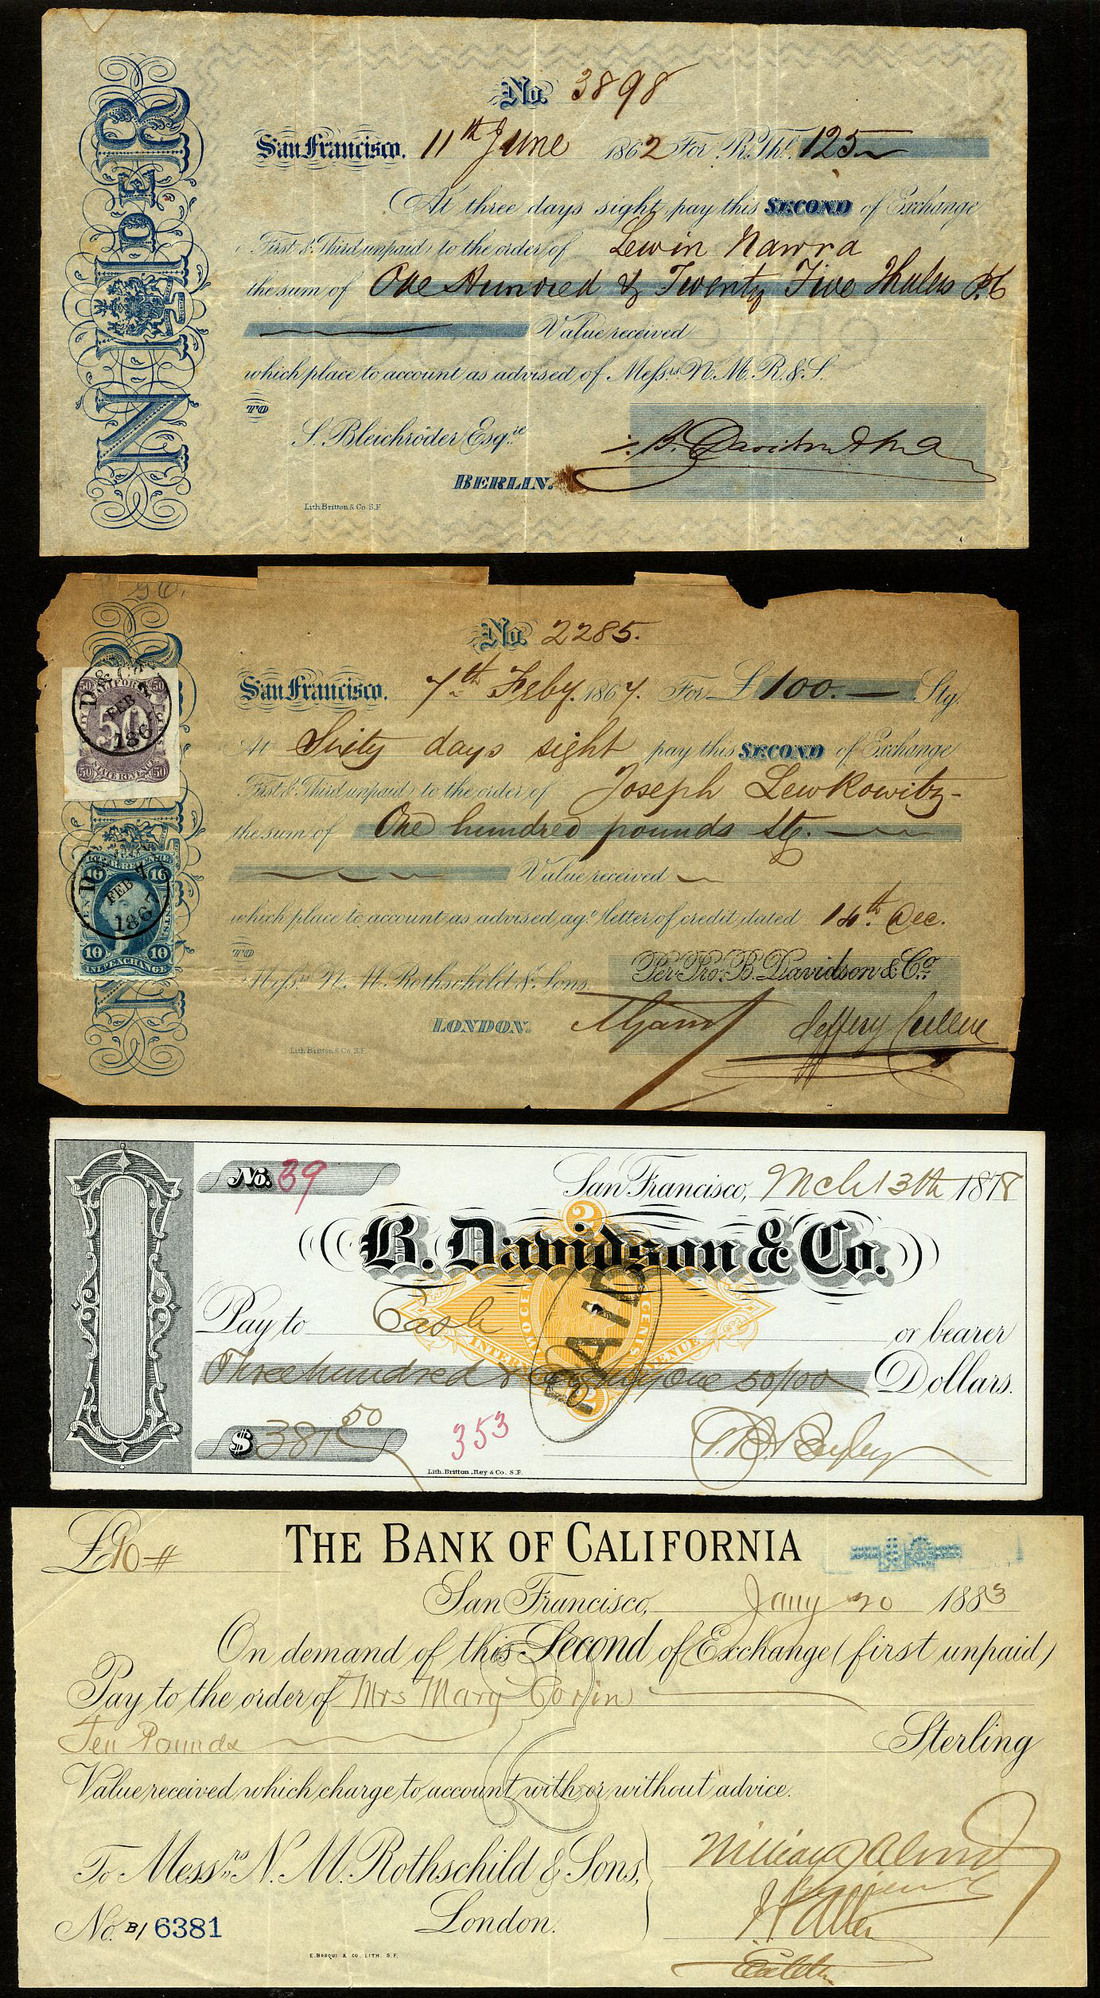 No. 3898
San Francisco. 11th June 1862 For R. Thl. 125
At three days sight pay this SECOND of Exchange
First & Third unpaid to the order of Lewin Nawra
the sum of One Hundred & Twenty Five Thalers P.C
Value received
which place to account as advised of Messrs N. M. R. & S.
TO
S. Bleichröder Esqre
BERLIN.
Lith. Britton & Co. S.F.
No. 2285.
San Francisco. 7th Feby. 1867. For £ 100.— Stg.
At Sixty days sight pay this SECOND of Exchange
First & Third unpaid to the order of Joseph Lewkowitz
the sum of One hundred pounds Stg.
Value received
which place to account as advised agt. letter of credit dated 14th Dec.
TO
Messrs N. M. Rothschild & Sons. Per Pro. B. Davidson & Co.
LONDON.
Lith. Britton & Co. S.F.
50
50 STATE REVENUE 50
FEB 7
1867
FEB 7
1867
10 10
INL. EXCHANGE
No. 39
San Francisco, Mch 13th 1878
B. Davidson & Co.
Pay to Cash or bearer
Three hundred & Eighty one 50/100 Dollars.
PAID
$ 381.50
353
Lith. Britton, Rey & Co. S.F.
£10-#
THE BANK OF CALIFORNIA
San Francisco, Jany 20 1883
On demand of this Second of Exchange (first unpaid)
Pay to the order of Mrs Mary
Ten Pounds Sterling
Value received which charge to account with or without advice.
To Messrs N. M. Rothschild & Sons,
London.
No. B/ 6381
E. BOSQUI & CO. LITH. S.F.